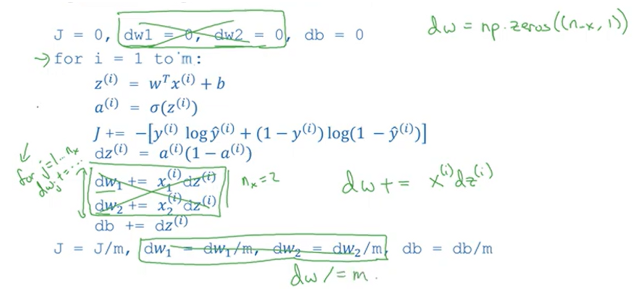 J = 0, dw1 = 0, dw2 = 0, db = 0
dw = np.zeros((n-x, 1))
→ for i = 1 to m:
z⁽ⁱ⁾ = wᵀx⁽ⁱ⁾ + b
a⁽ⁱ⁾ = σ(z⁽ⁱ⁾)
J += −[y⁽ⁱ⁾ log ŷ⁽ⁱ⁾ + (1 − y⁽ⁱ⁾) log(1 − ŷ⁽ⁱ⁾)]
dz⁽ⁱ⁾ = a⁽ⁱ⁾(1 − a⁽ⁱ⁾)
for j=1...nₓ
dwⱼ += ...
dw₁ += x₁⁽ⁱ⁾ dz⁽ⁱ⁾
dw₂ += x₂⁽ⁱ⁾ dz⁽ⁱ⁾
nₓ = 2
dw += x⁽ⁱ⁾dz⁽ⁱ⁾
db += dz⁽ⁱ⁾
J = J/m, dw₁ = dw₁/m, dw₂ = dw₂/m, db = db/m
dw /= m.